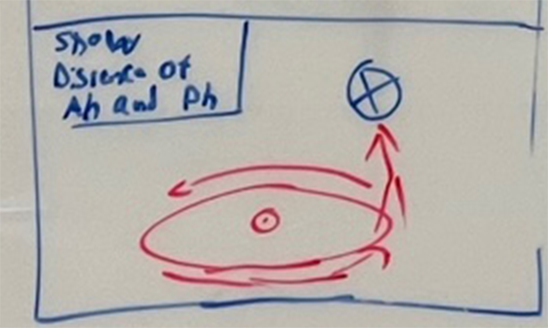 Show
Disrence of
Ah and Ph